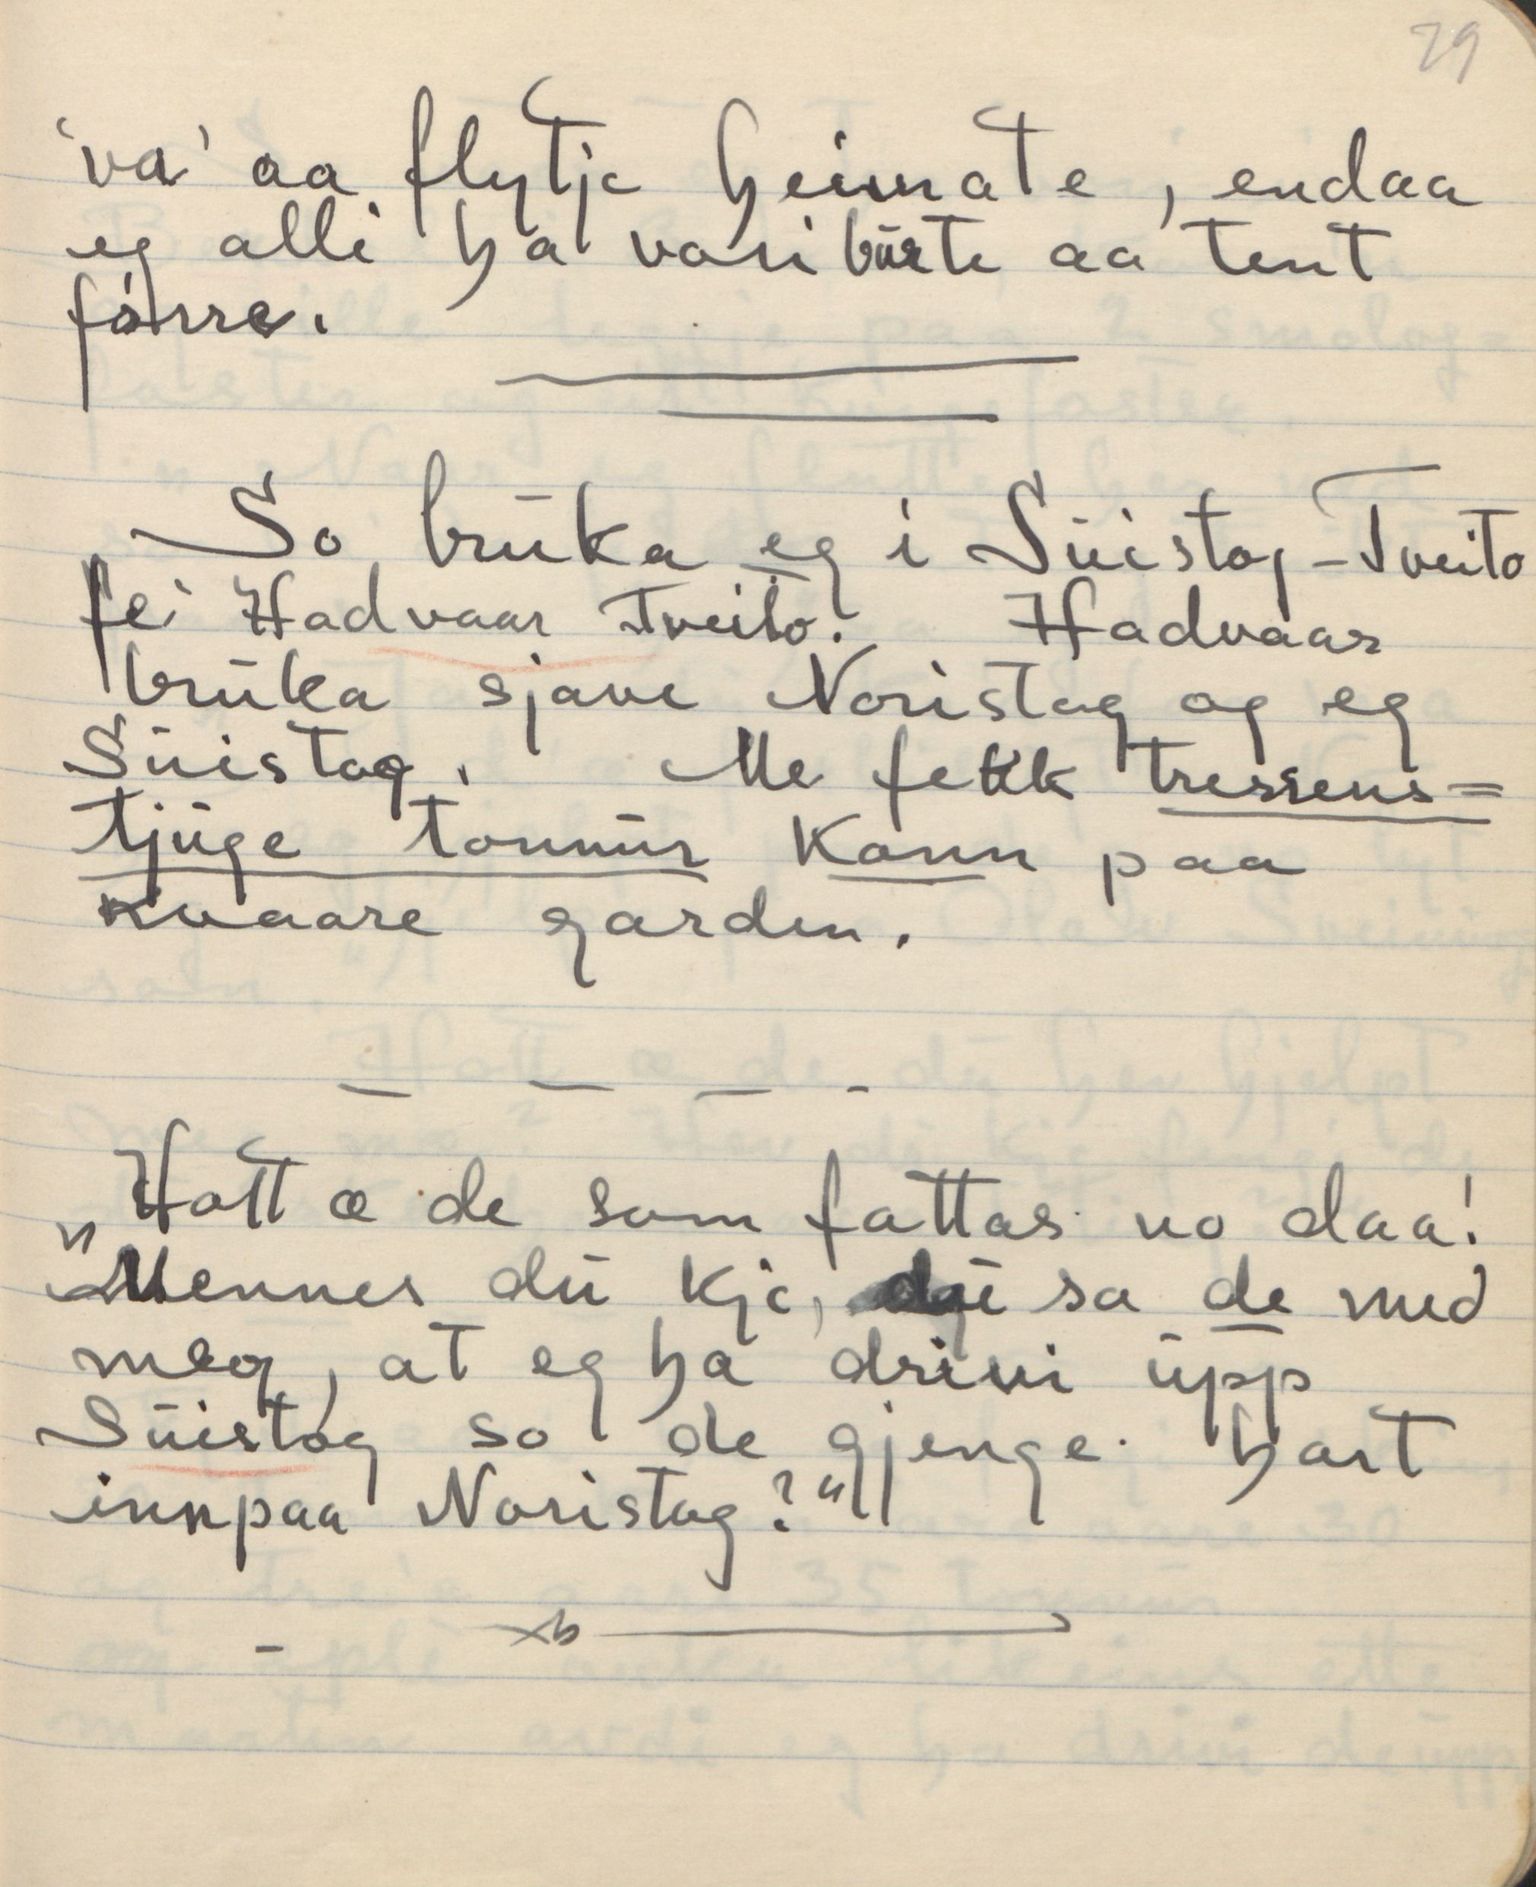 29
'va' aa flytje heimate, endaa
eg alli ha vori būrte aa tent
fórre.
So brūka eg i Sūistog-Tveito
fei Hadvaar Tveito. Hadvaar
brūka sjave Noristog og eg
Sūistog. Me fekk tressens=
tjūge tonnūr Konn paa
kvaare garden.
Hott æ de som fattas no daa!
"Mennes dū kje, sa de med
meg, at eg ha drivi ūpp
Sūistog so de gjenge hart
innpaa Noristog?"